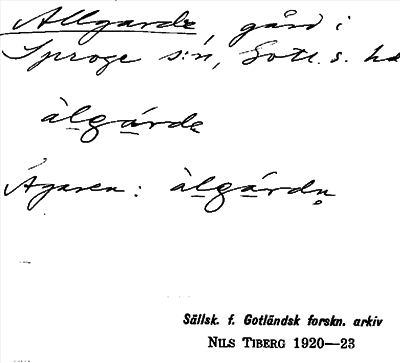 Allgarde, gård i
Sproge s:n, Gotl. s. hd
àlgárde
Ägaren: àlgárdn̥
Sällsk. f. Gotländsk forskn. arkiv
NILS TIBERG 1920—23